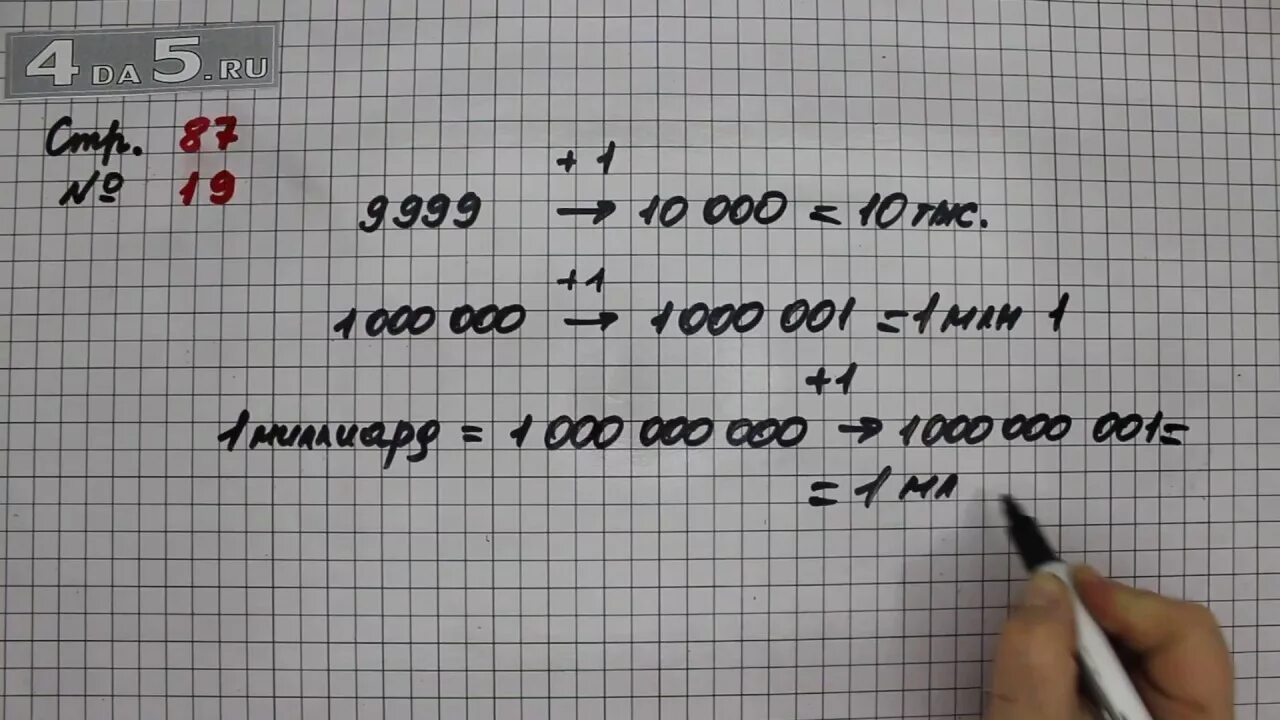 4DA5.RU
Стр. 87
№ 19
+ 1
9999 → 10 000 = 10 тыс.
+1
1 000 000 → 1 000 001 = 1 млн 1
+1
1 миллиард = 1 000 000 000 → 1 000 000 001 =
= 1 мл